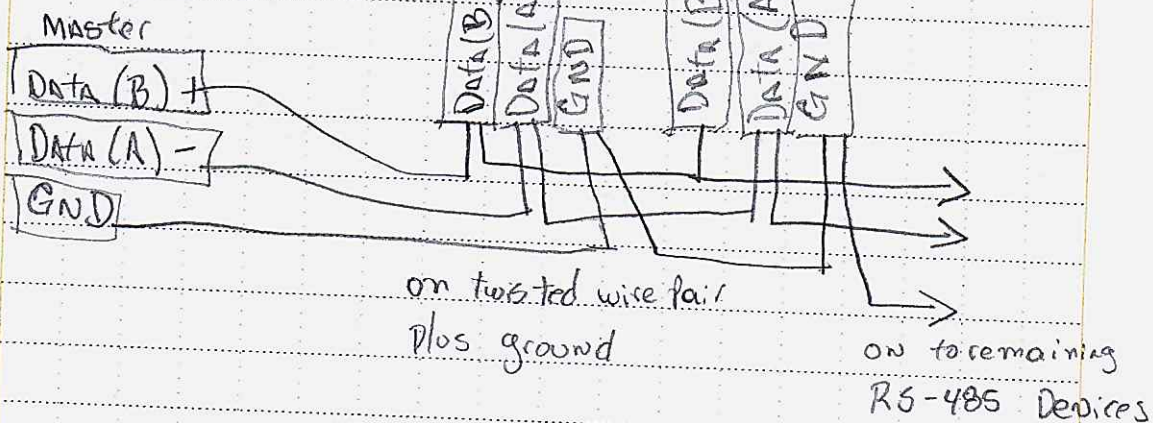 Master
Data (B) +
Data (A) -
GND
Data (B
Data (A
GND
Data (
Data (A
GND
on twisted wire pair
Plus ground
on to remaining
RS-485 Devices